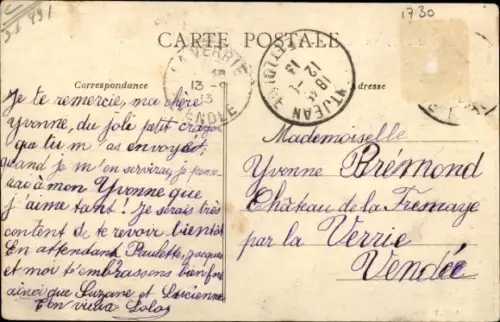 1730
CARTE POSTALE
LA VERRIE
13
VENDÉE
18
12 -
13
Correspondance
Adresse
Je te remercie, ma chère
Yvonne, du joli petit crayon
que tu m'as envoyé,
quand je m'en servirai, je pense
à mon Yvonne que
j'aime tant! Je serais très
content de te revoir bientôt
En attendant Paulette, Jacques
et moi t'embrassons bien fort
ainsi que Suzane et Lucienne
Ton vieux Lolo
Mademoiselle
Yvonne Brémond
Château de la Fremaye
par la Verrie
Vendée